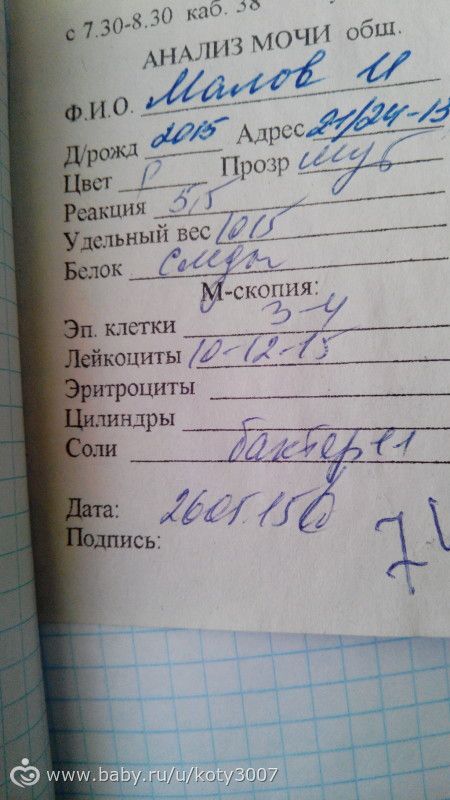 с 7.30-8.30 каб. 38
АНАЛИЗ МОЧИ общ.
Ф.И.О. Малов И
Д/рожд 2015 Адрес 21/24-15
Цвет Прозр мут
Реакция 5,5
Удельный вес 1015
Белок следы
М-скопия:
Эп. клетки 3-4
Лейкоциты 10-12-15
Эритроциты
Цилиндры
Соли бактер
Дата: 2605.15
Подпись:
www.baby.ru/u/koty3007